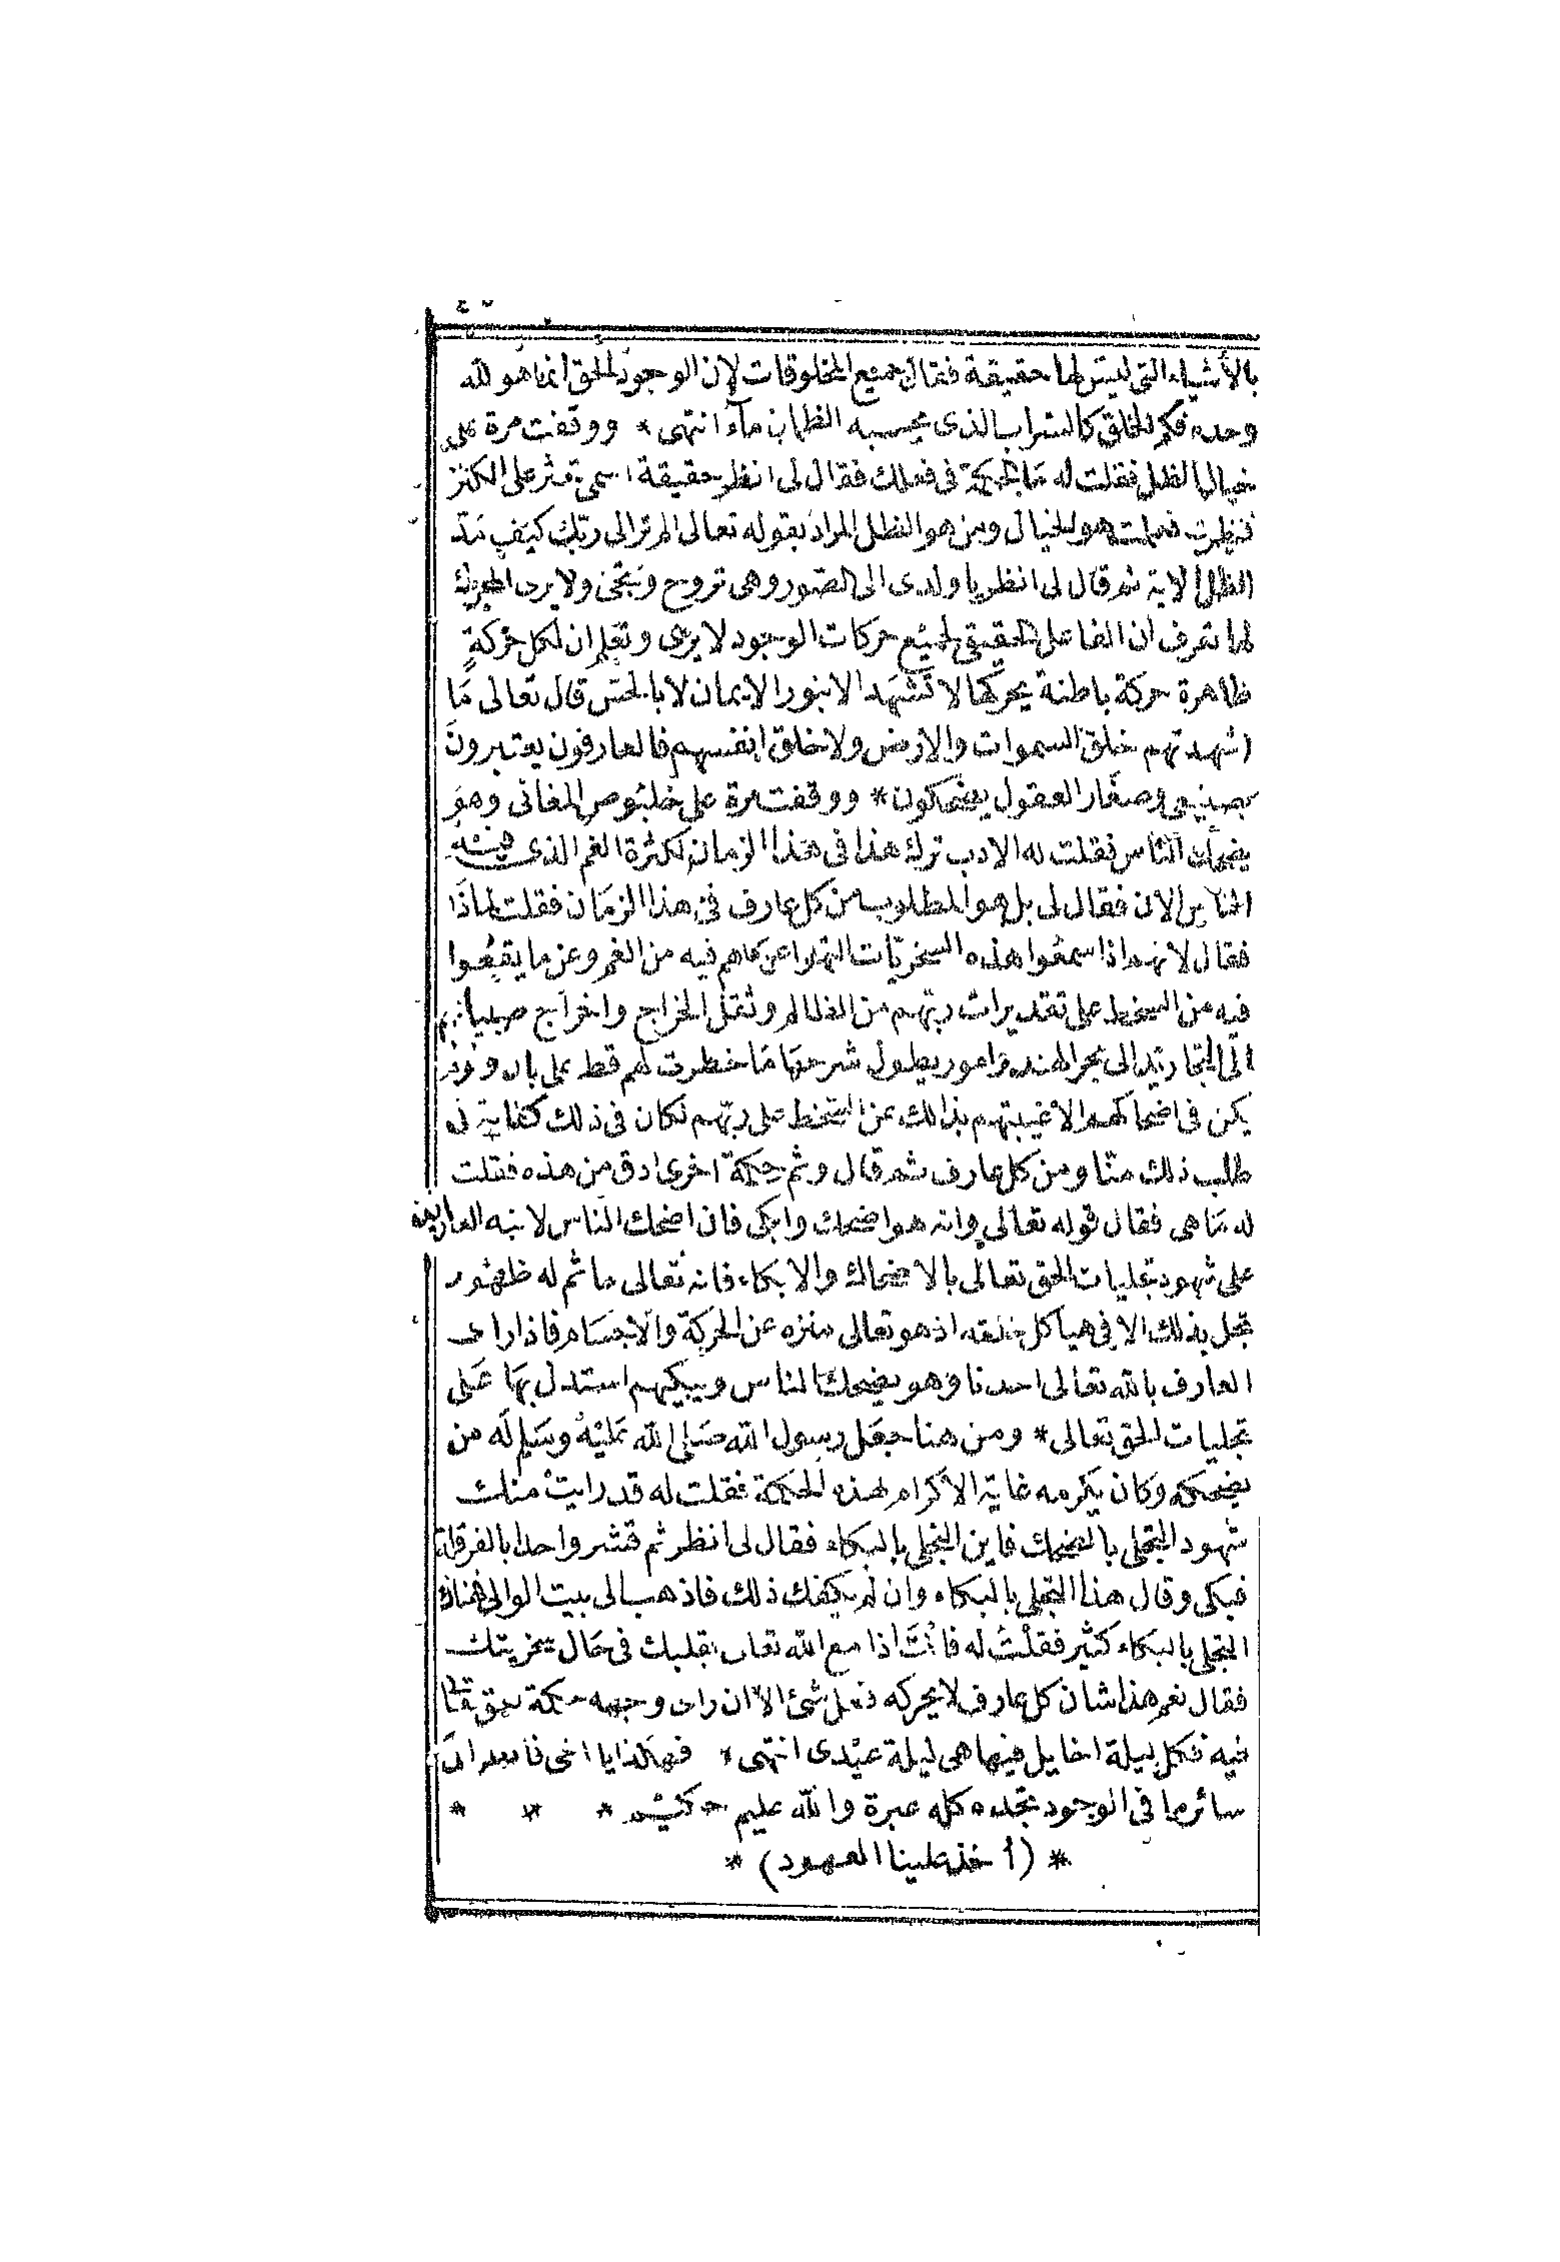 بالأشياء التى ليس لها حقيقة فقال جميع المخلوقات لان الوجود الحق انما هو لله
وحده فكم الخلق كالسراب الذى يحسبه الظمان مآء انتهى * ووقفت مرة على
خيال الظل فقلت له ما الحكمة فى فعلك فقال لى انظر حقيقة اسمى تعثر على الكنز
فنظرت فعلمت هو الخيال ومن هو الظل المراد بقوله تعالى الم تر الى ربك كيف مد
الظل الاية ثم قال لى انظر يا ولدى الى الصور وهى تروح وتجئ ولا يرى المحرك
لها تعرف ان الفاعل الحقيقى لجميع حركات الوجود لا يرى وتعلم ان لكل حركة
ظاهرة حركة باطنة يحركها لا تشهد الا بنور الايمان لا بالحس قال تعالى ما
اشهدتهم خلق السموات والارض ولا خلق انفسهم فالعارفون يعتبرون
بصنيعى وصغار العقول يضحكون * ووقفت مرة على خلبوص المغانى وهو
يضحك الناس فقلت له الادب ترك هذا فى هذا الزمان لكثرة الغم الذى فيه
الناس الان فقال لى بل هو المطلوب من كل عارف فى هذا الزمان فقلت لماذا
فقال لانهم اذا سمعوا هذه السخريات التهوا عن ما هم فيه من الغم وعن ما يقعوا
فيه من السخط على تقديرات ربهم من الظالم وثقل الخراج واخراج صبيانهم
الى التجاريد الى بحر الهند وامور يطول شرحها ما خطرت لهم قط على بال ولو لم
يكن فى اضحاكهم الا غيبتهم بذلك عن السخط على ربهم لكان فى ذلك كفاية فى
طلب ذلك منا ومن كل عارف ثم قال وثم حكمة اخرى ادق من هذه فقلت
له ما هى فقال قوله تعالى وانه هو اضحك وابكى فان اضحك الناس لانبه العارفين
على شهود تجليات الحق تعالى بالاضحاك والابكاء فانه تعالى ما ثم له ظهور
تجل بذلك الا فى هياكل خلقه اذ هو تعالى منزه عن الحركة والاجسام فاذا راى
العارف بالله تعالى احدنا وهو يضحك الناس ويبكيهم استدل بها على
تجليات الحق تعالى * ومن هنا جعل رسول الله صلى الله عليه وسلم له من
يضحكه وكان يكرمه غاية الاكرام لهذه الحكمة فقلت له قد رايت منك
شهود التجلى بالضحك فاين التجلى بالبكاء فقال لى انظر ثم قشر واحدا بالفرقلة
فبكى وقال هذا التجلى بالبكاء وان لم يكفك ذلك فاذهب الى بيت الوالى فهناك
التجلى بالبكاء كثير فقلت له فانت اذا مع الله تعالى بقلبك فى حال سخريتك
فقال نعم هذا شان كل عارف لا يحركه فعل شئ الا ان راى وجهه حكمة
فيه فكل ليلة اخايل فيها هى ليلة عيدى انتهى * فهكذا يا اخى
سائر ما فى الوجود تجده كله عبرة والله عليم حكيم * * *
* (أخذ علينا العهود) *